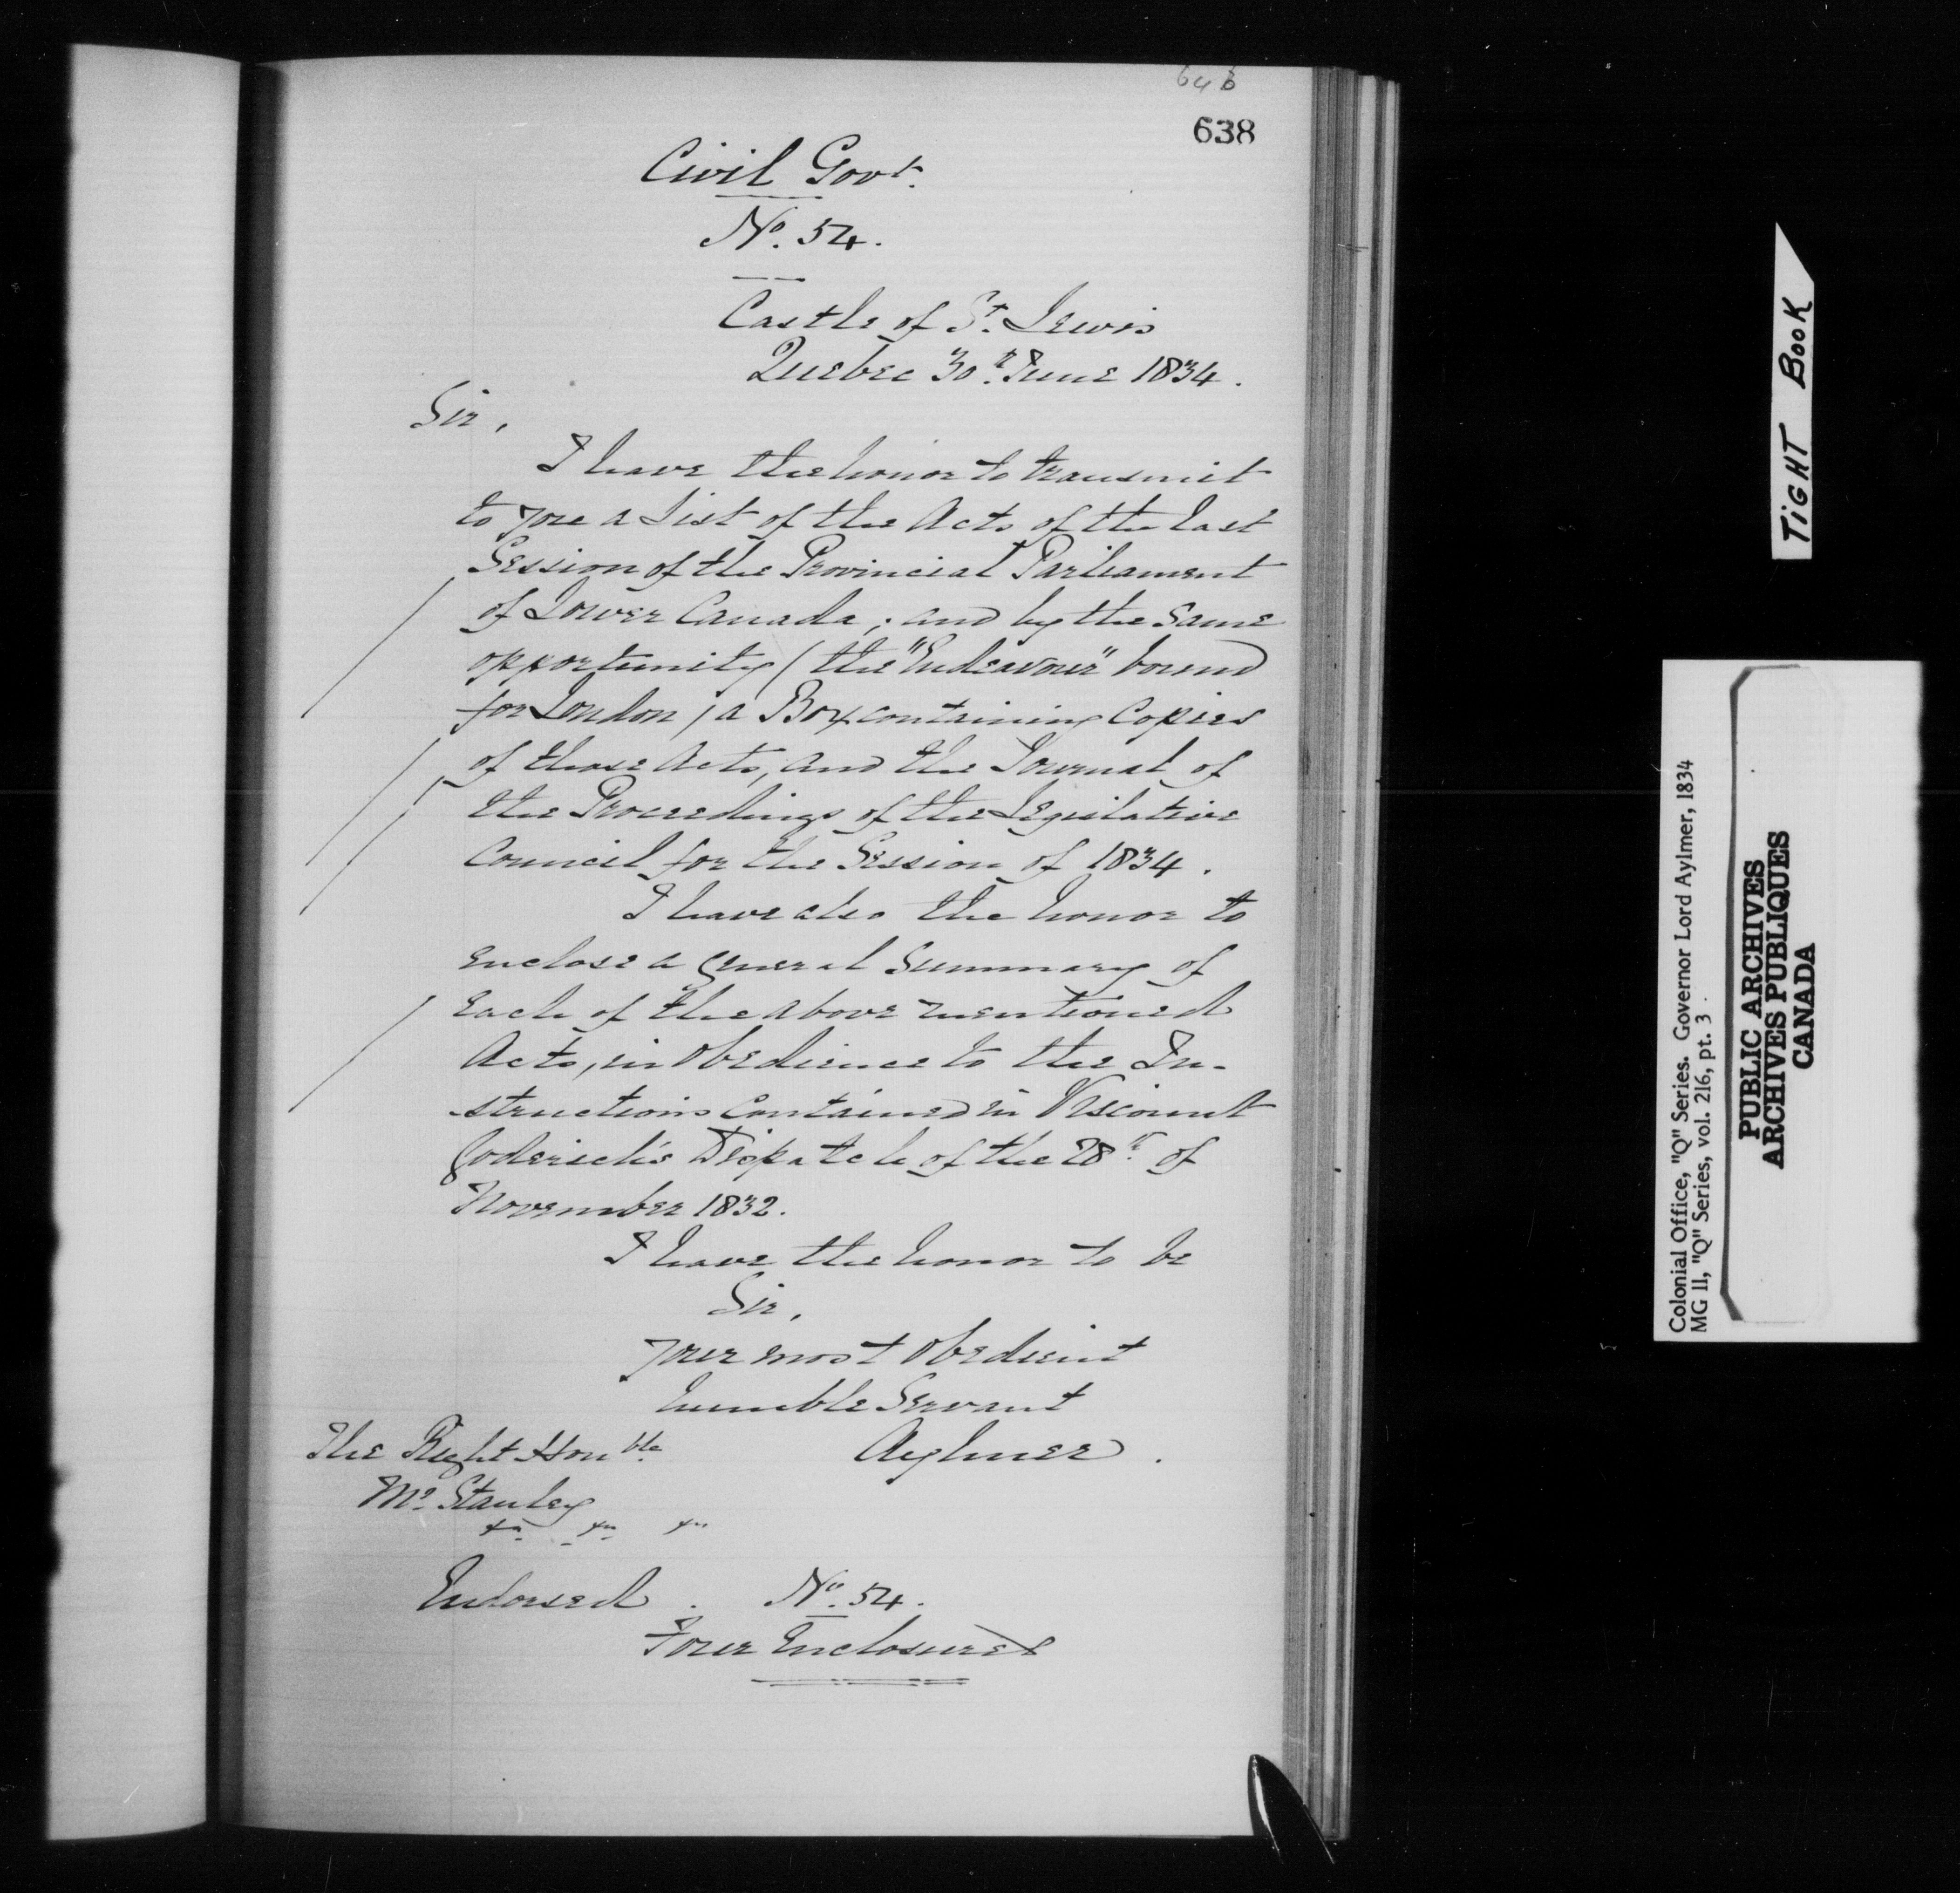 638
Civil Govt.
No. 54.
Castle of St. Lewis
Quebec 30th June 1834.
Sir,
I have the honor to transmit
to you a List of the Acts of the last
Session of the Provincial Parliament
of Lower Canada, and by the same
opportunity (the "Endeavour" bound
for London) a Box containing Copies
of those Acts, and the Journal of
the Proceedings of the Legislative
Council for the Session of 1834.
I have also the honor to
enclose a general Summary of
each of the above mentioned
Acts, in obedience to the In-
structions contained in Viscount
Goderich's Dispatch of the 28th of
November 1832.
I have the honor to be
Sir,
Your most obedient
humble Servant
Aylmer.
The Right Honble.
Mr. Stanley
Endorsed. No. 54.
Four Enclosures
TIGHT BOOK
Colonial Office, "Q" Series. Governor Lord Aylmer, 1834
MG 11, "Q" Series, vol. 216, pt. 3
PUBLIC ARCHIVES
ARCHIVES PUBLIQUES
CANADA